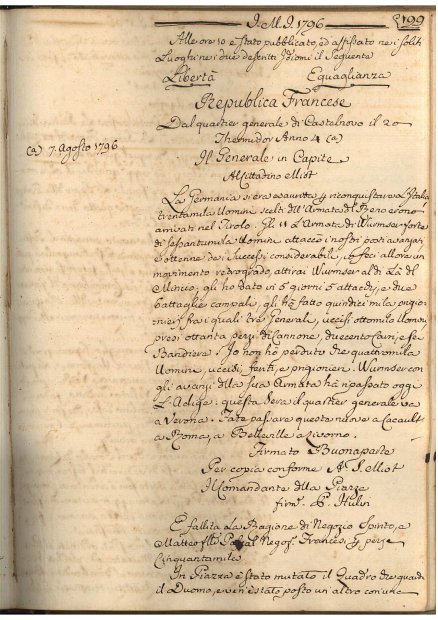 J.M.J. 1796
199
Alle ore 10 è stato pubblicato, ed affissato ne i soliti
Luoghi ne i due descritti Idiomi il seguente
Libertà Eguaglianza
Republica Francese
Dal quartier generale di Castelnovo il 20
Thermidor Anno 4 (a)
(a) 7. Agosto 1796
Il Generale in Capite
Al Cittadino elliot
La Germania s'era esaurita p riconquistare l'Italia
trentamila Uomini scelti dell'Armata del Reno erono
arrivati nel Tirolo. Gli 11 L'Armata di Wurmser forte
di sessantamila Uomini attaccò i nostri posti avanzati
e ottenne dei successi considerabili, io feci allora un
movimento retrogrado, attirai Wurmser al di Là del
Mincio; gli ho dato in 6 giorni 5 attacchi, e due
battaglie campali, gli hò fatto quindici mila prigio-
nieri fra i quali trè Generali, uccisi ottomila Uomini
presi ottanta pezzi di Cannone, duecento Caissoni, e sei
Bandiere. Io non hò perduto che quattromila
Uomini, uccisi, feriti, e prigionieri. Wurmser con
gli avanzi della sua Armata hà ripassato oggi
L'Adige: questa sera il quartier generale va
a Verona. Fate passare questa nuove a Cacault
a Roma, a Belleville a Livorno.
Firmato Buonaparte
Per copia conforme A. S. elliot
Il Comandante della Piazza
firm. P. Hulin
È fallita La Ragione di Negozio Spirito, e
Matteo Negoz. Francesi p pezze
Cinquantamile.
In Piazza è stato mutato il Quadro che guarda
il Duomo, e vi è stato posto un altro con una